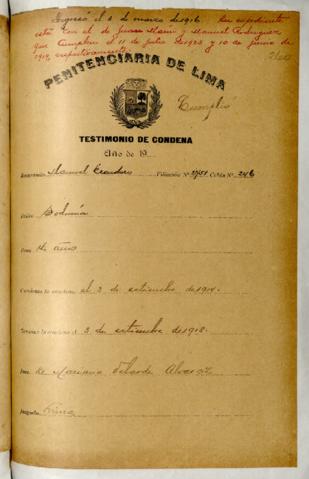 Ingresó el 6 de marzo de 1916. Su expediente
está con el de Juan Mamí y Manuel Rodriguez
que cumplen el 11 de Julio de 1923 y 10 de junio de
1919, respectivamente
PENITENCIARIA DE LIMA
Cumplió
TESTIMONIO DE CONDENA
Año de 19
Manuel Filiación N° Celda N° 246
Delito
Pena 4 años
Comienza la condena el 3 de setiembre de 1914.
Termina la condena el 3 de setiembre de 1918.
Juez de Mariano Velarde Alvarez